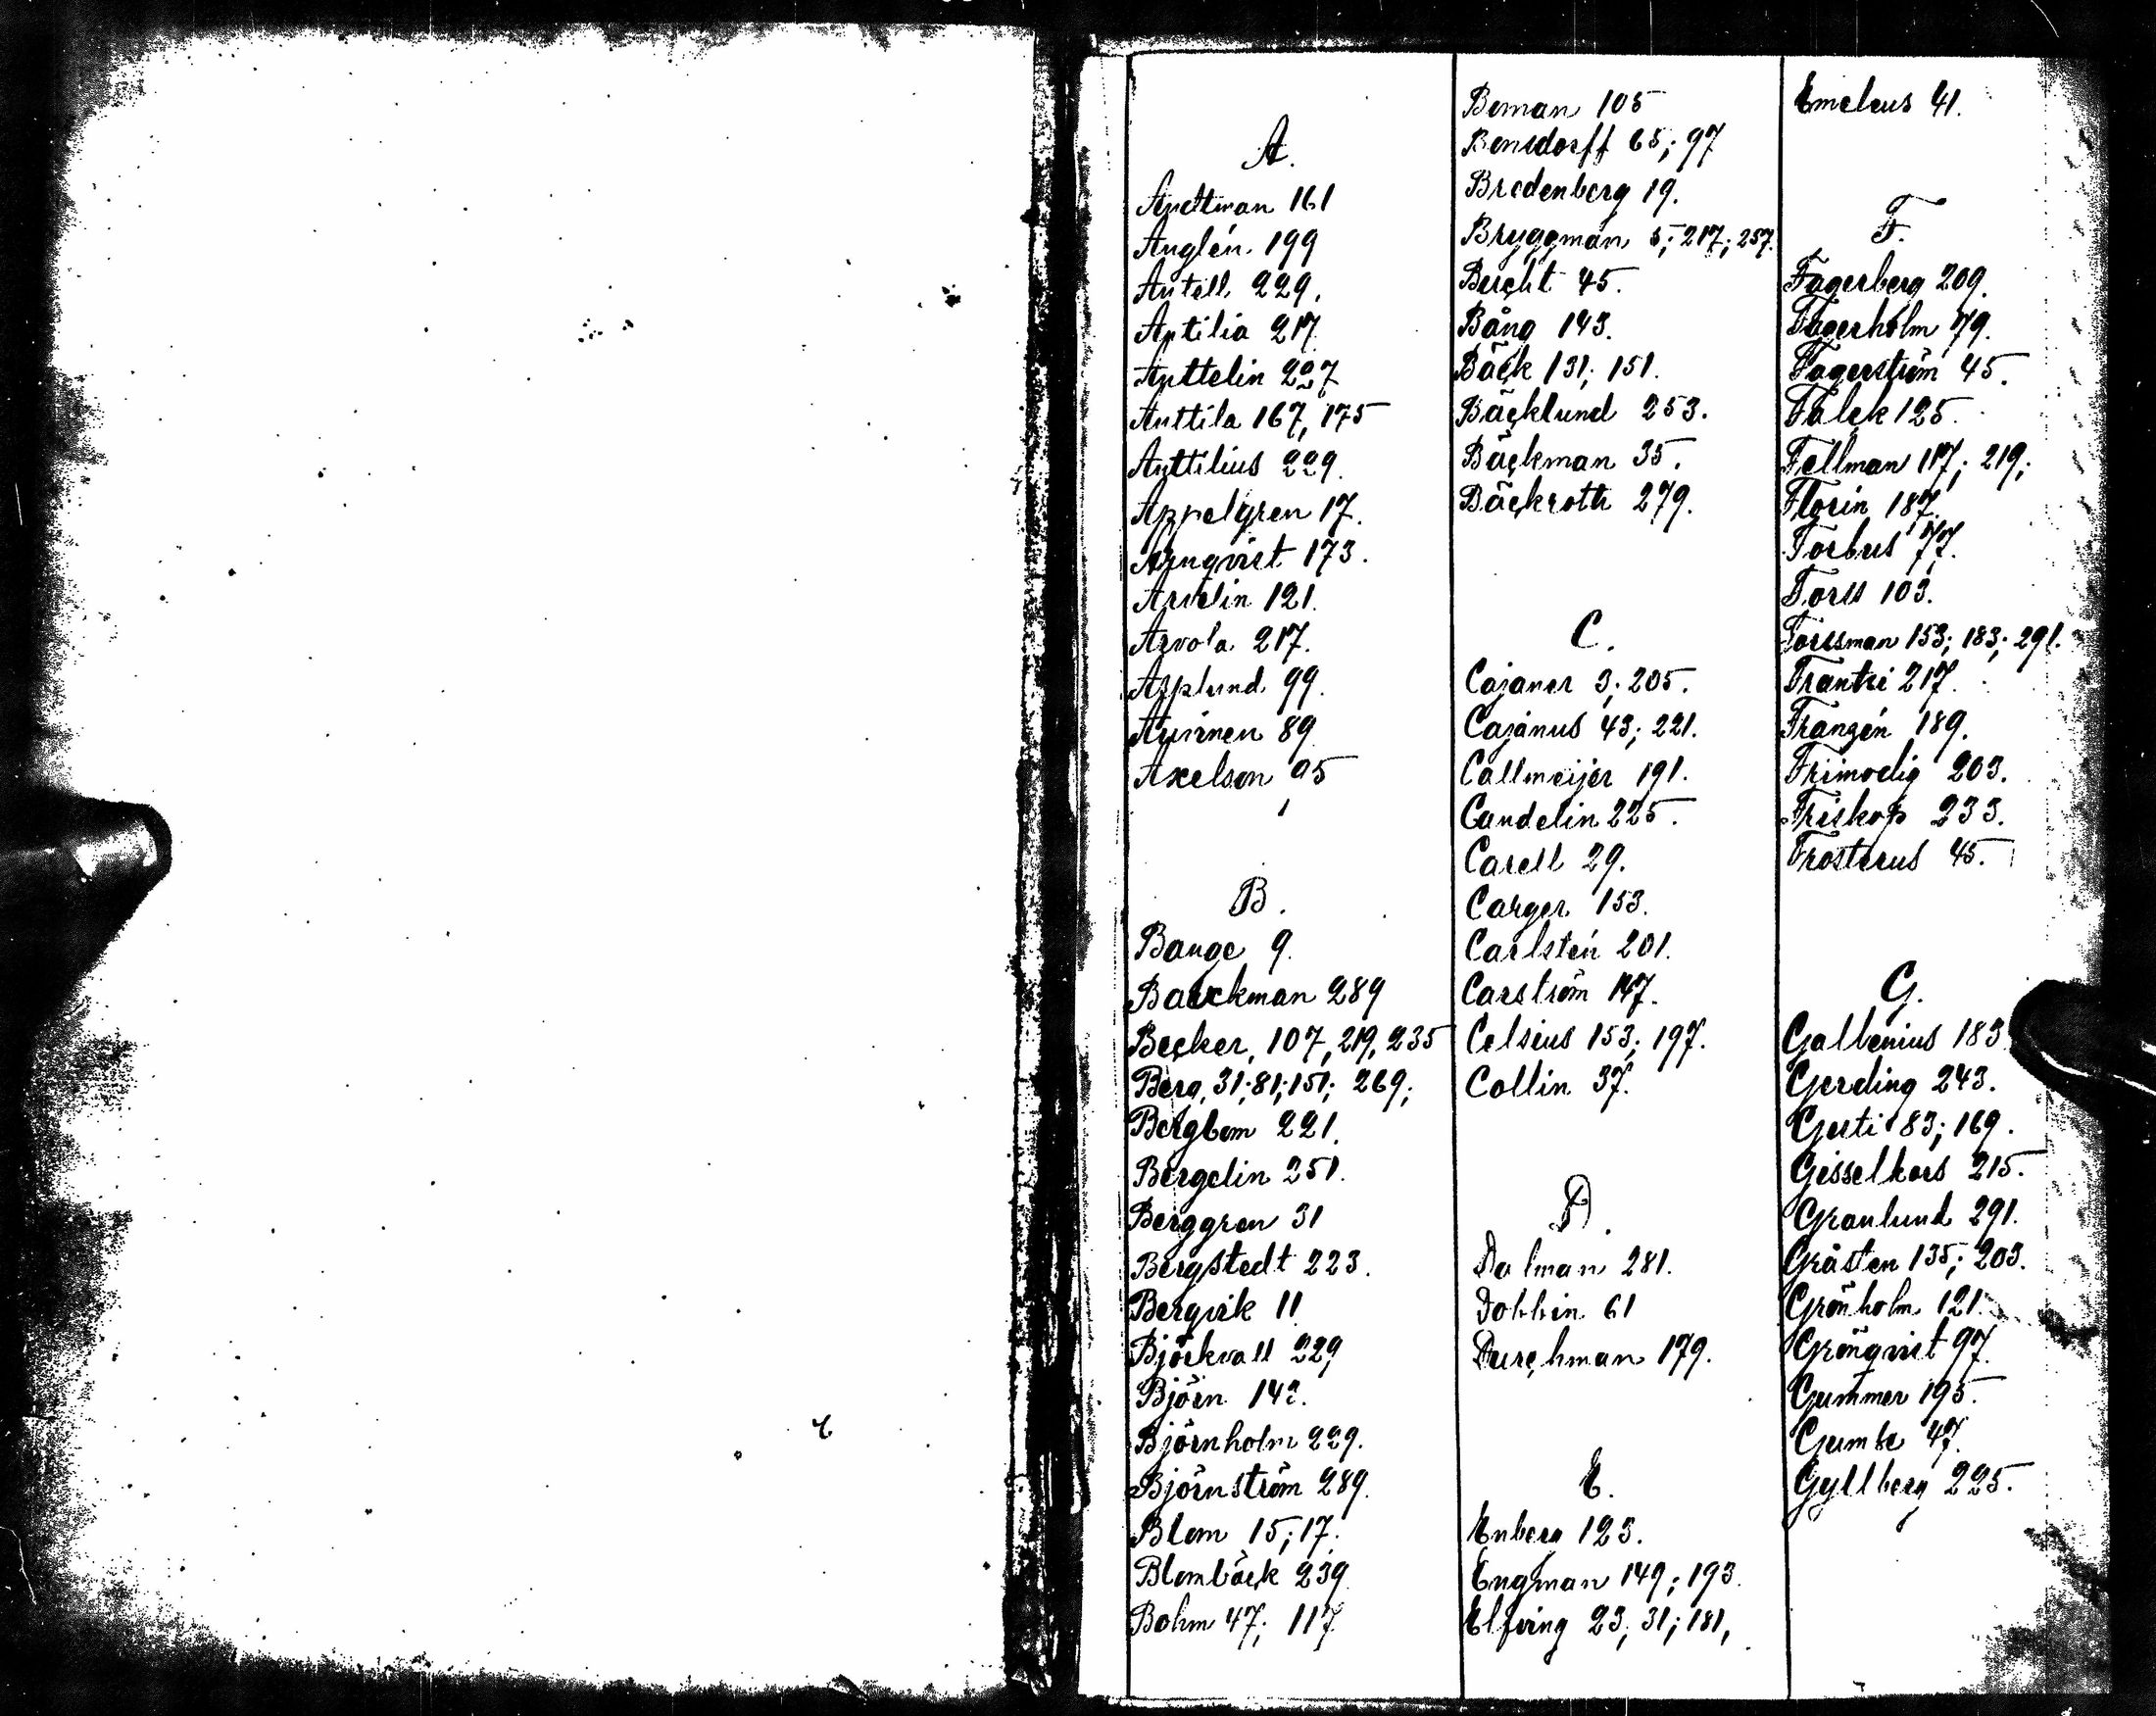 A.
Anttman 161
Anglén. 199
Antell 229.
Antilia 217
Anttelin 227
Anttila 167, 175
Anttilius 229.
Appelgren 17.
Arnqvist 173.
Arvelin 121.
Arvola 217.
Asplund 99.
Auvinen 89
Axelson 95
B.
Bange 9.
Backman 289
Becker, 107, 219, 235
Berg, 31; 81; 151; 269;
Bergbom 221.
Bergelin 251.
Berggren 31
Bergstedt 223.
Bergvik 11
Björkvall 229
Björn 143.
Björnholm 229.
Björnström 289.
Blom 15; 17.
Blombäck 239
Bohm 47; 117
Boman 105
Bonsdorff 65; 97
Bredenberg 19.
Bryggman 5; 217; 257.
Bucht 45.
Bång 143.
Bäck 131; 151.
Bäcklund 253.
Bäckman 35.
Bäckroth 279.
C.
Cajaner 3; 205.
Cajanus 43; 221.
Callmeijer 191.
Candelin 225.
Carell 29.
Carger 153.
Carlstén 201.
Carström 147.
Celsius 153; 197.
Collin 37.
D.
Dalman 281.
Dobbin 61
Durchman 179.
E.
Enberg 123.
Engman 149; 193.
Elfving 23; 31; 181,
Emeleus 41.
F.
Fagerberg 209.
Fagerholm 79.
Fagerström 45.
Falck 125.
Fellman 117; 219;
Florin 187.
Forbus 77.
Fors 103.
Forssman 153; 183; 291.
Frantsi 217.
Franzén 189.
Frimodig 203.
Friskop 233.
Frosterus 45.
G.
Gallenius 183
Gerding 243.
Gerti 83; 169.
Gisselkors 215.
Granlund 291.
Gråsten 135; 203.
Grönholm 121.
Grönqvist 97.
Gummer 195.
Gumse 47.
Gyllberg 225.